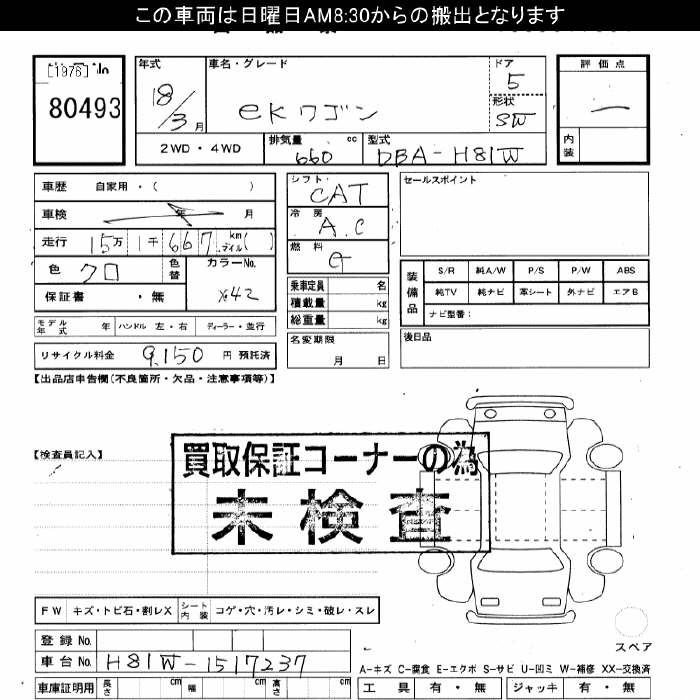 この車両は日曜日AM8:30からの搬出となります
[1976] No
80493
年式
18/3月
車名・グレード
eKワゴン
ドア
5
形状
SW
評価点
―
内装
2WD・4WD
排気量 660 cc
型式 DBA-H81W
車歴 自家用・( )
車検 年 月
走行 15万1千667 km マイル( )
色 クロ
色替
カラーNo. X42
保証書 ・無
モデル年式 年 ハンドル 左・右 ディーラー・並行
リサイクル料金 9,150 円 預託済
シフト CAT
冷房 A.C
燃料 G
乗車定員 名
積載量 kg
総重量 kg
名変期限 月 日
セールスポイント
装備品
S/R 純A/W P/S P/W ABS
純TV 純ナビ 革シート 外ナビ エアB
ナビ型番:
後日品
【出品店申告欄(不良箇所・欠品・注意事項等)】
【検査員記入】
買取保証コーナーの為
未検査
FW キズ・トビ石・割レX シート内装 コゲ・穴・汚レ・シミ・破レ・スレ
登録No.
車台No. H81W-1517237
車庫証明用 長さ cm 幅 cm 高さ cm
スペア
A-キズ C-腐食 E-エクボ S-サビ U-凹ミ W-補修 XX-交換済
工具 有・無 ジャッキ 有・無